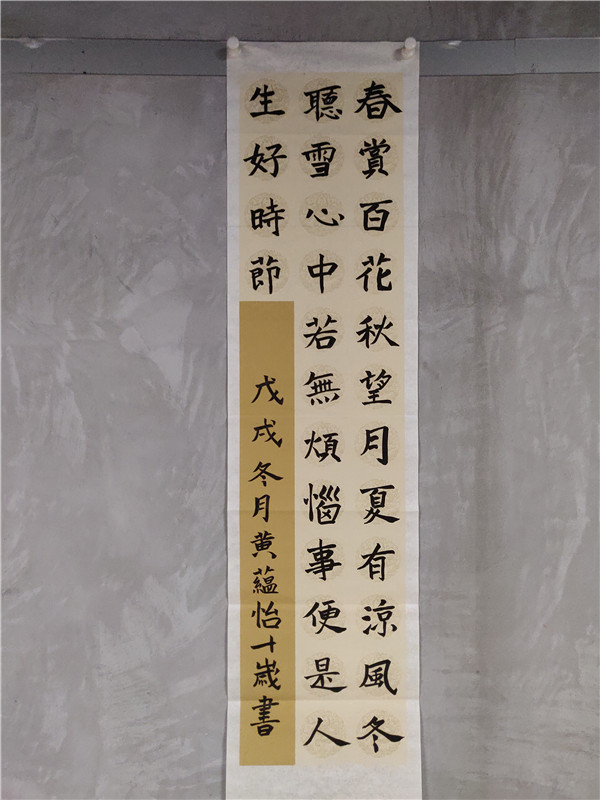 春賞百花秋望月夏有涼風冬
聽雪心中若無煩惱事便是人
生好時節
戊戌冬月黄蘊怡十歲書